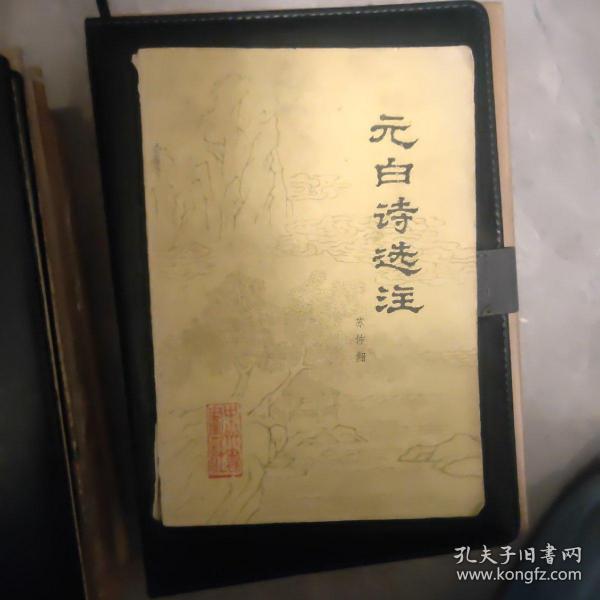 元白诗选注
苏仲翔
中州书画社
孔夫子旧书网
www.kongfz.com